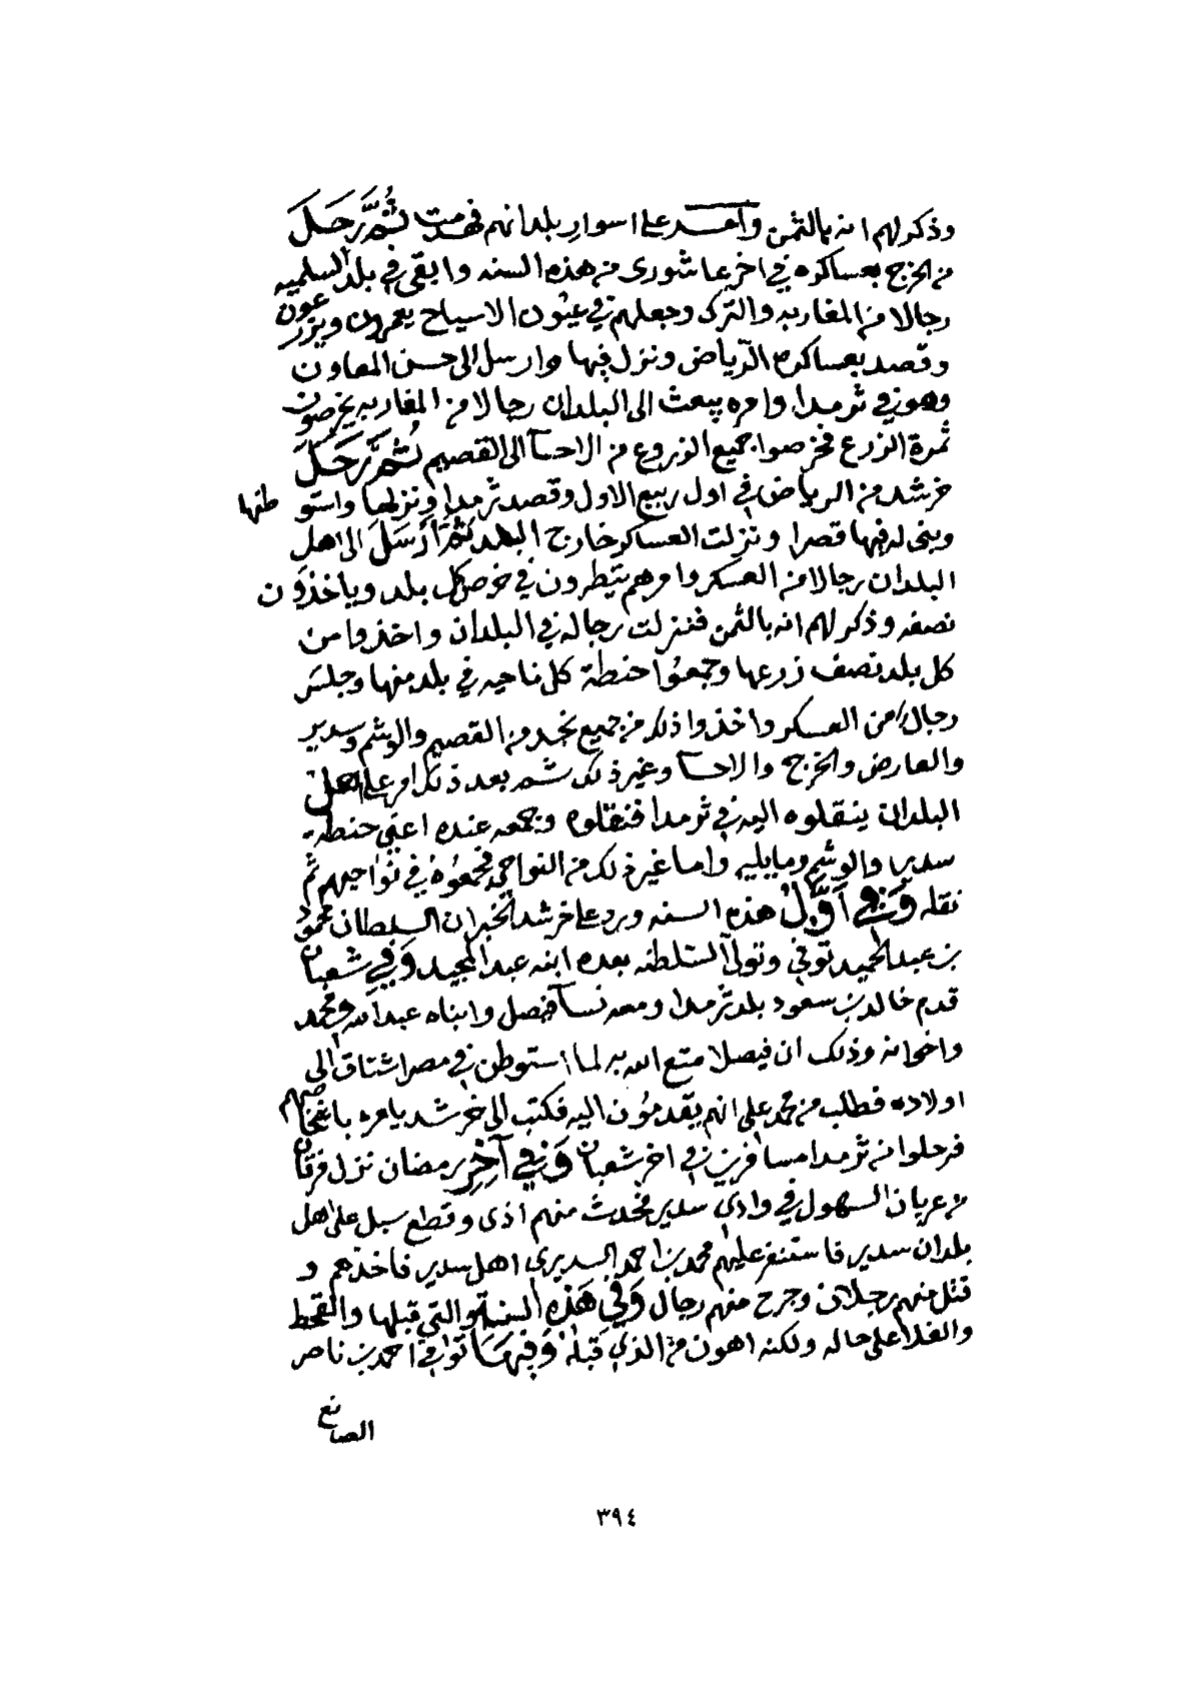 وذكر لهم انه بالثمن وامر على اسوار بلدانهم فهدمت ثُمَّ رَحَلَ
من الخرج بعساكره في اخر عاشورى من هذه السنه وابقى في بلد السلميه
رجالا من المغاربه والترك وجعلهم في عيون الاسياح يعمرون ويزرعون
وقصد بعساكره الرياض ونزل فيها وارسل الى حسن المعاون
وهو في ثرمدا وامره يبعث الى البلدان رجالا من المغاربه يخرصون
ثمرة الزرع فخرصوا جميع الزروع من الاحسآ الى القصيم ثُمَّ رَحَلَ
خرشد من الرياض في اول ربيع الاول وقصد ثرمدا ونزلها واستوطنها
وبنى له فيها قصرا ونزلت العساكر خارج البلد ثُمَّ أَرسَلَ الى اهل
البلدان رجالا من العسكر وامرهم ينظرون في خرص كل بلد وياخذون
نصفه وذكر لهم انه بالثمن فنزلت رجاله في البلدان واخذوا من
كل بلد نصف زرعها وجمعوا حنطة كل ناحيه في بلد منها وجلس
رجال من العسكر واخذوا ذلك من جميع نجد من القصيم والوشم وسدير
والعارض والخرج والاحسآ وغير ذلك ثم بعد ذلك امر على اهل
البلدان ينقلوه اليه في ثرمدا فنقلوه وجمعه عنده اعني حنطة
سدير والوشم وما يليه واما غير ذلك من النواحي فجمعوه في نواحيهم ثم
نقله وَفي أَوَّلْ هذه السنه ورد على خرشد الخبر ان السلطان محمود
بن عبد الحميد توفي وتولى السلطنه بعده ابنه عبد المجيد وَفي شعبان
قدم خالد بن سعود بلد ثرمدا ومعه نسآ فيصل وابناه عبد الله ومحمد
واخوانه وذلك ان فيصلا متع الله به لما استوطن في مصر اشتاق الى
اولاده فطلب من محمد علي انهم يقدمون اليه فكتب الى خرشد يامره باشخاصهم
فرحلوا من ثرمدا مسافرين في اخر شعبان وَفي آخِرِ رمضان نزل فرقان
من عربان السهول في وادي سدير فحدث منهم اذى وقطع سبل على اهل
بلدان سدير فاستنفر عليهم محمد بن احمد السديري اهل سدير فاخذهم و
قتل منهم رجلان وجرح منهم رجال وَفي هَذه السنة والتي قبلها والقحط
والغلا على حاله ولكنه اهون من الذي قبله وَفيهَا توفي احمد بن ناصر
الصانع
٣٩٤